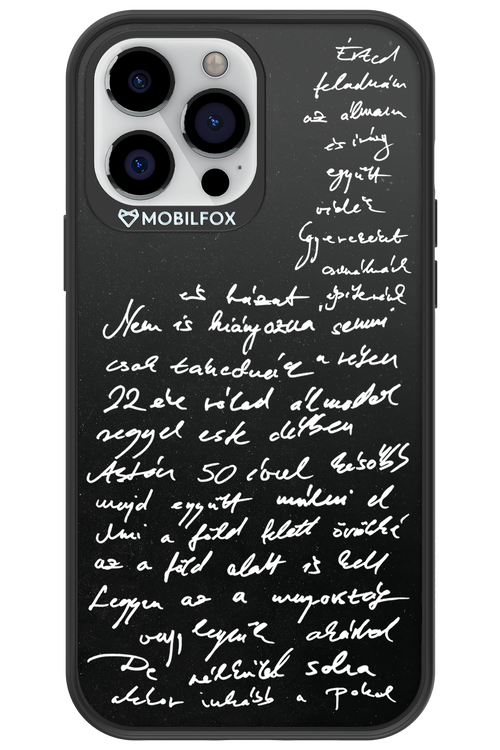 MOBILFOX
Érted
feladnám
az álmaim
és irány
együtt
vidék
Gyerekeket
csinálnánk
és házat építenénk
Nem is hiányozna semmi
csak takednéz a résen
22 éve rólad álmodok
reggel este délben
Aztán 50 évvel később
majd együtt múlni el
Ami a föld felett örökké
az a föld alatt is kell
Legyen az a mennyország
vagy legyünk akárhol
De nélküled soha
akkor inkább a pokol